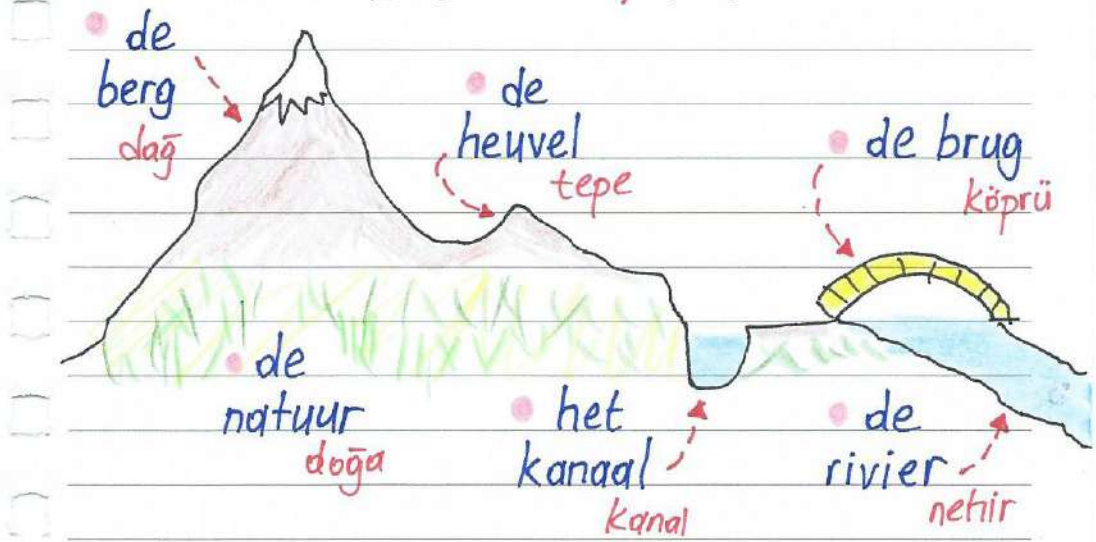 de
berg
dağ
de
heuvel
tepe
de brug
köprü
de
natuur
doğa
het
kanaal
kanal
de
rivier
nehir